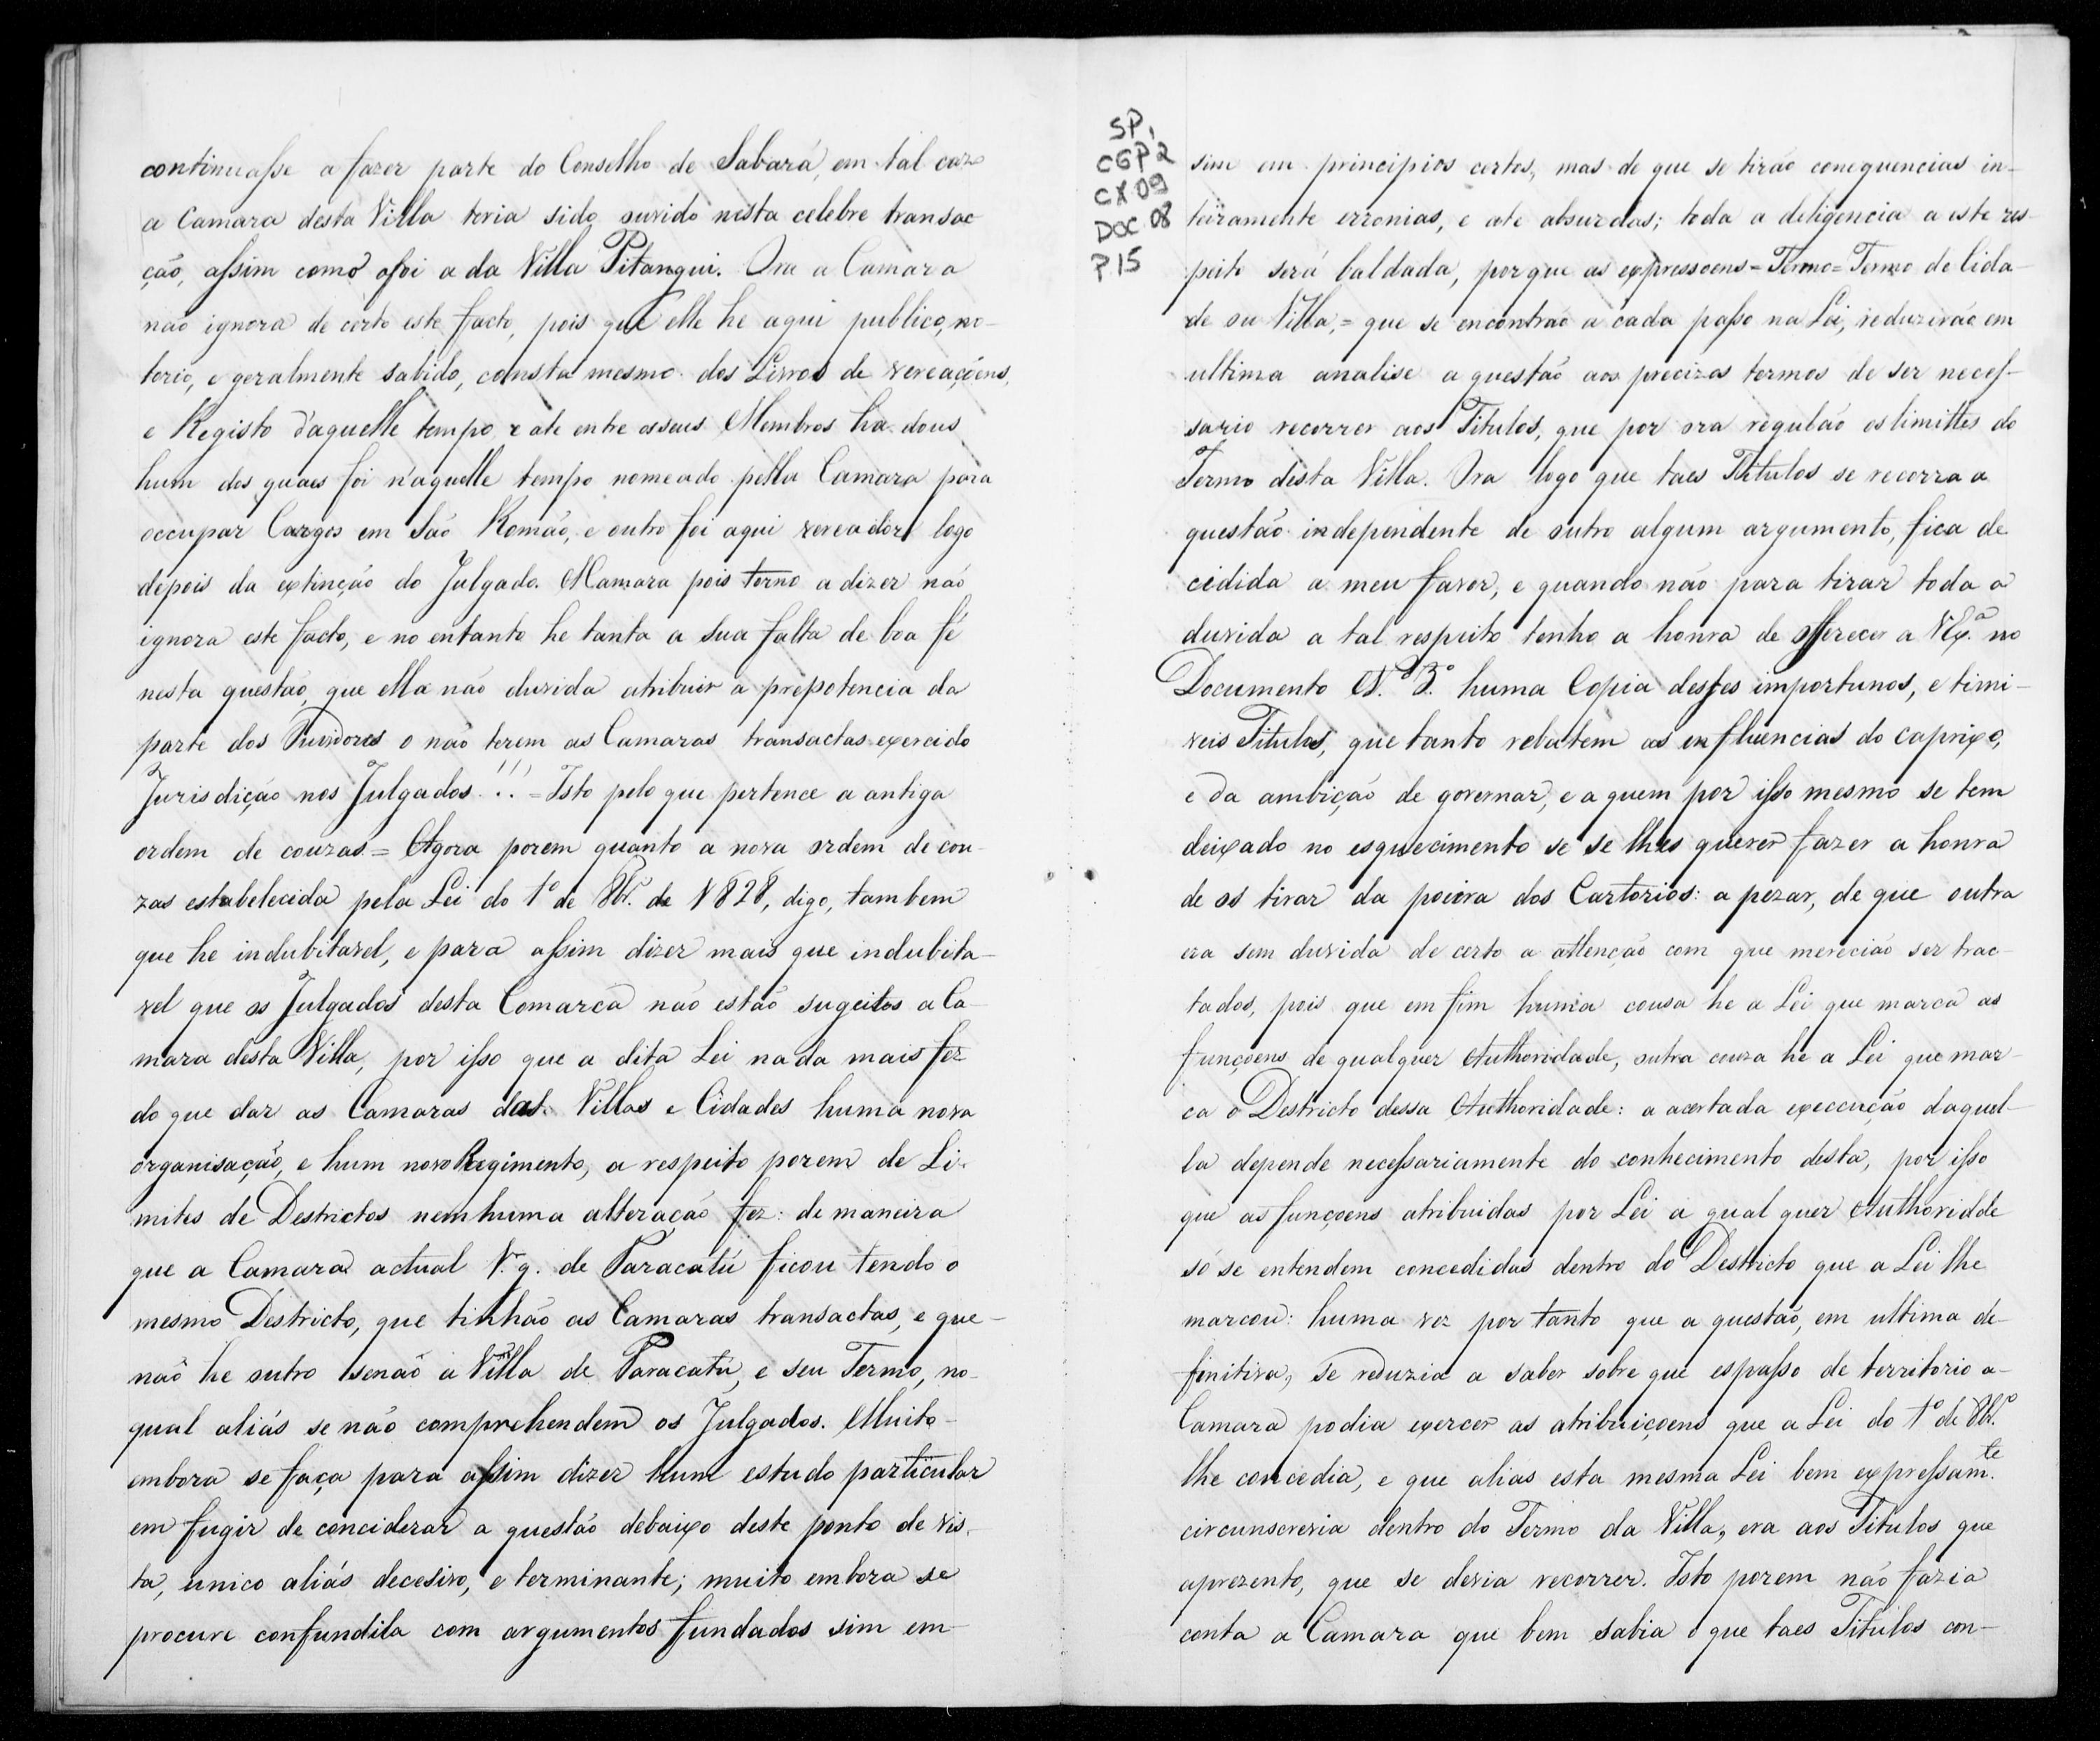 continuasse a fazer parte do Conselho de Sabará, em tal cazo
a Camara desta Villa teria sido ouvido nesta celebre transac
ção, assim como ofoi a da Villa Pitangui. Ora a Camara
não ignora de certo este facto, pois que elle he aqui publico, no-
torio, e geralmente sabido, consta mesmo dos Livros de vereaçoens,
e Registo d'aquelle tempo, e ate entre osseus Membros ha dous
hum dos quaes foi n'aquelle tempo nomeado pella Camara para
occupar Cargos em São Romão, e outro foi aqui vereador logo
depois da extinção do Julgado. Mamara pois torno a dizer não
ignora este facto, e no entanto he tanta a sua falta de boa fé
nesta questão, que ella não duvida atribuir a prepotencia da
parte dos Ouvidores o não terem as Camaras transactas exercido
Jurisdição nos Julgados!!! = Isto pelo que pertence a antiga
ordem de couzas = Agora porem quanto a nova ordem de cou-
zas estabelecida pela Lei do 1º de 8br. de 1828, digo, tambem
que he indubitavel, e para assim dizer mais que indubita-
vel que os Julgados desta Comarca não estão sugeitos a Ca-
mara desta Villa, por isso que a dita Lei nada mais fez
do que dar as Camaras das Villas e Cidades huma nova
organisação, e hum novo Regimento, a respeito porem de Li-
mites de Destrictos nemhuma alteração fez: de maneira
que a Camara actual V. g. de Paracatú ficou tendo o
mesmo Destricto, que tinhão as Camaras transactas, e que-
não he outro senão a Villa de Paracatú, e seu Termo, no-
qual aliás se não comprehendem os Julgados. Muito-
embora se faça para assim dizer hum estudo particular
em fugir de conciderar a questão debaixo deste ponto de vis-
ta, unico aliás decesivo, e terminante; muito embora se
procure confundila com argumentos fundados sim em-
SP,
CGP2
CX09
DOC 08
P15
sim em principios certos, mas de que se tirão conequencias in-
teiramente erronias, e ate absurdas; toda a deligencia a este res-
peito será baldada, porque as expressoens = Termo = Termo de Cida-
de ou Villa, = que se encontrão a cada passo na Lei, reduzirão em
ultima analise a questão aos precizos termos de ser neces-
sario recorrer aos Titulos, que por ora regulão os limittes do
Termo desta Villa. Ora logo que taes Titulos se recorra a
questão independente de outro algum argumento, fica de
cidida a meu favor, e quando não para tirar toda a
duvida a tal respeito tenho a honra de offerecer a V Exª no
Documento N.º 3.º huma Copia desses importunos, e timi-
veis Titulos, que tanto rebatem as influencias do caprixo,
e da ambição de governar, e a quem por isso mesmo se tem
deixado no esquecimento se se lhes querer fazer a honra
de os tirar da poeira dos Cartorios: a pezar, de que outra
era sem duvida de certo a attenção com que merecião ser trac-
tados, pois que em fim huma cousa he a Lei que marca as
funçoens de qualquer Authoridade, outra couza he a Lei que mar-
ca o Destricto dessa Authoridade: a acertada execução daquel-
la depende necessariamente do conhecimento desta, por isso
que as funçoens atribuidas por Lei a qual quer Authoridde
só se entendem concedidas dentro do Destricto que a Lei lhe
marcou: huma vez por tanto que a questão, em ultima de-
finitiva, se reduzia a saber sobre que espasso de territorio a-
Camara podia exercer as atribuiçoens que a Lei do 1º de 8br.º
lhe concedia, e que alias esta mesma Lei bem expressam.te
circunscrevia dentro do Termo da Villa, era aos Titulos que
aprezento, que se devia recorrer. Isto porem não fazia
conta a Camara que bem sabia o que taes Titulos con-